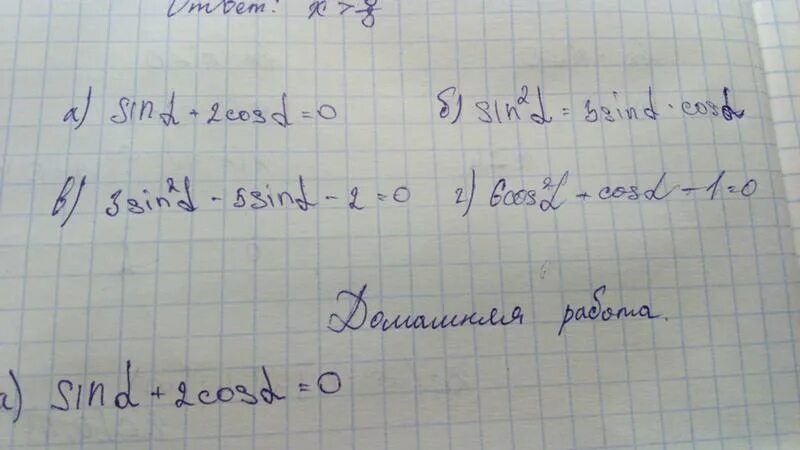 Ответ: x >
а) sinα + 2cosα = 0 б) sin²α = 3sinα · cosα
в) 3sin²α - 5sinα - 2 = 0 г) 6cos²α + cosα - 1 = 0
Домашняя работа.
а) sinα + 2cosα = 0